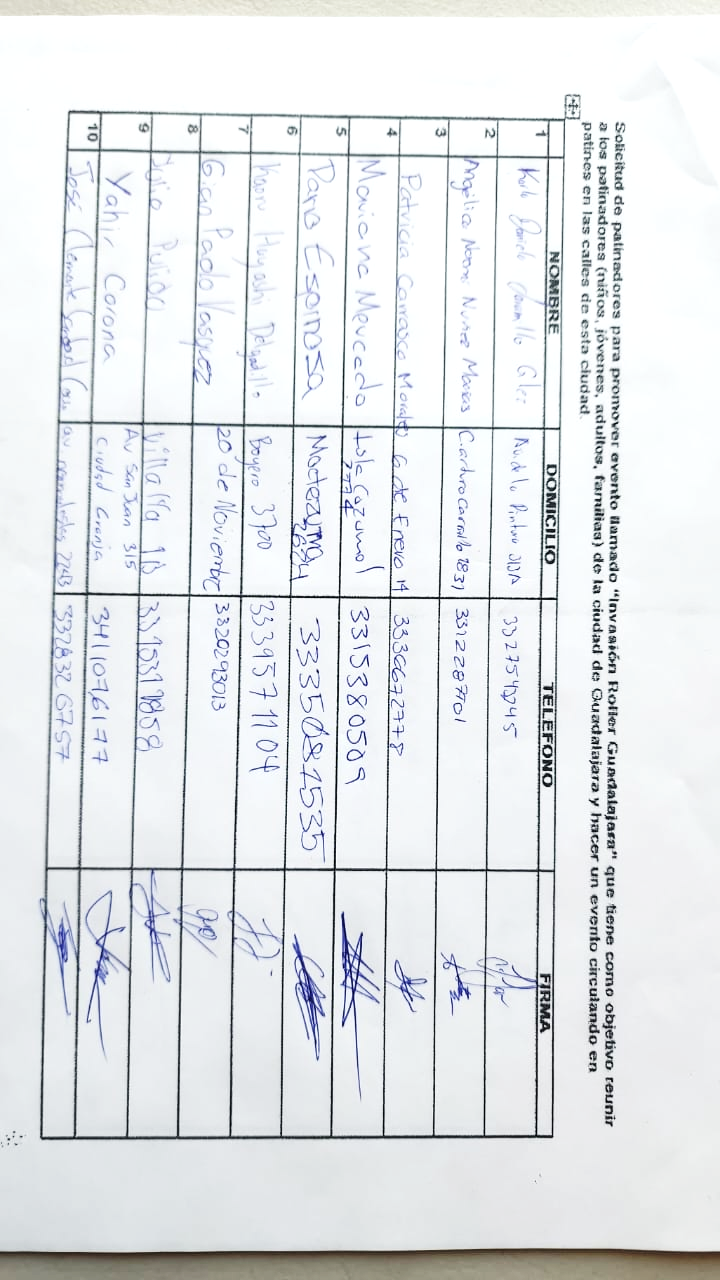 Solicitud de patinadores para promover evento llamado "Invasión Roller Guadalajara" que tiene como objetivo reunir
a los patinadores (niños, jóvenes, adultos, familias) de la ciudad de Guadalajara y hacer un evento circulando en
patines en las calles de esta ciudad.
NOMBRE DOMICILIO TELEFONO FIRMA
1 Karla Jaramillo
2 Angélica Nuñez Macias 1831 3312287701
3 Patricia Carrasco Morales 6 de Enero 14 3336672778
4 Mariana Mercado Isla Cozumel 2774 3315380509
5 Dario Espinosa Moctezuma 3335081535
6 Hayashi Delgadillo Boyero 3700 3339571104
7 Gian Paolo Vasquez 20 de Noviembre 3320293013
8 Julio Pulido Villalta
9 Yahir Corona Av San Juan 315 Ciudad Granja 3411076177
10 José Clemente 2243 3328326757